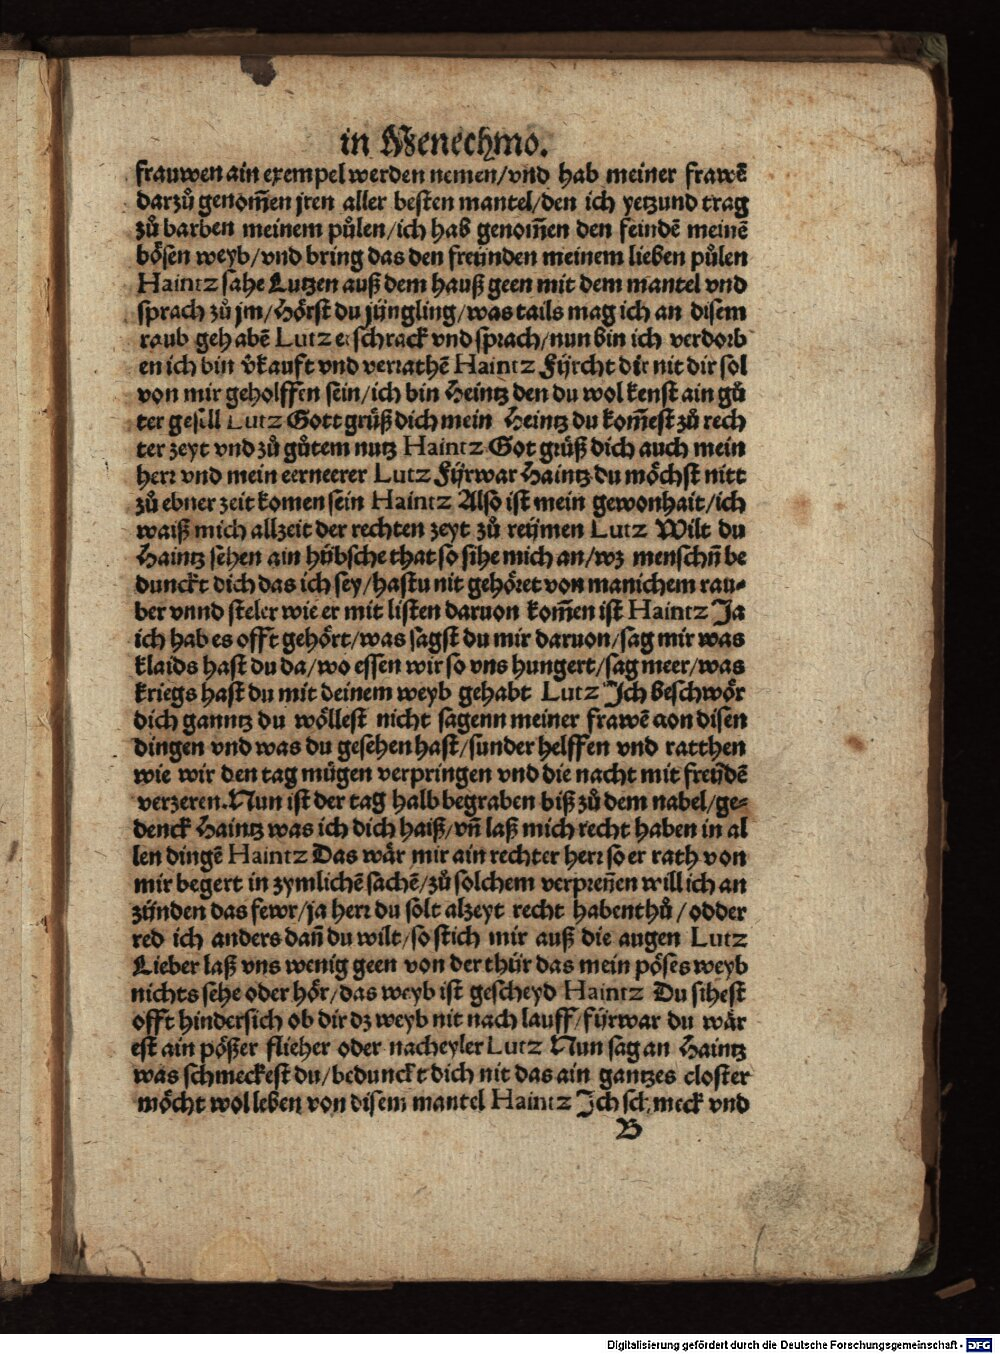 in Menechmo.
frauwen ain exempel werden nemen/vnd hab meiner frawẽ
darzů genom̃en jren aller besten mantel/den ich yetzund trag
zů barben meinem půlen/ich hab genom̃en den feindẽ meinẽ
bösen weyb/vnd bring das den freünden meinem lieben půlen
Haintz sahe Lutzen auß dem hauß geen mit dem mantel vnd
sprach zů jm/Hörst du jüngling/was tails mag ich an disem
raub gehabẽ Lutz erschrack vnd sprach/nun bin ich verdorb
en ich bin v̉kauft vnd verrathẽ Haintz Fürcht dir nit dir sol
von mir geholffen sein/ich bin Heintz den du wol kenst ain gů
ter gesell Lutz Gott grüß dich mein Heintz du kom̃est zů rech
ter zeyt vnd zů gůtem nutz Haintz Got grüß dich auch mein
herr vnd mein eerneerer Lutz Fürwar Haintz du möchst nitt
zů ebner zeit komen sein Haintz Also ist mein gewonhait/ich
waiß mich allzeit der rechten zeyt zů reümen Lutz Wilt du
Haintz sehen ain hübsche that so sihe mich an/wz menschñ be
dunckt dich das ich sey/hastu nit gehöret von manichem rau-
ber vnnd steler wie er mit listen daruon kom̃en ist Haintz Ja
ich hab es offt gehört/was sagst du mir daruon/sag mir was
klaids hast du da/wo essen wir so vns hungert/sag meer/was
kriegs hast du mit deinem weyb gehabt Lutz Ich beschwör
dich ganntz du wöllest nicht sagenn meiner frawẽ von disen
dingen vnd was du gesehen hast/sunder helffen vnd ratthen
wie wir den tag mügen verpringen vnd die nacht mit freüdẽ
verzeren.Nun ist der tag halb begraben biß zů dem nabel/ge-
denck Haintz was ich dich haiß/vñ laß mich recht haben in al
len dingẽ Haintz Das wär mir ain rechter herr so er rath von
mir begert in zymlichẽ sachẽ/zů solchem verpreñen will ich an
zünden das fewr/ja herr du solt alzeyt recht habenthů/odder
red ich anders dañ du wilt/so stich mir auß die augen Lutz
Lieber laß vns wenig geen von der thür das mein pöses weyb
nichts sehe oder hör/das weyb ist gescheyd Haintz Du sihest
offt hindersich ob dir dz weyb nit nach lauff/fürwar du wär
est ain pößer flieher oder nacheyler Lutz Nun sag an Haintz
was schmeckest du/bedunckt dich nit das ain gantzes closter
möcht wol leben von disem mantel Haintz Ich schmeck vnd
B
Digitalisierung gefördert durch die Deutsche Forschungsgemeinschaft - DFG